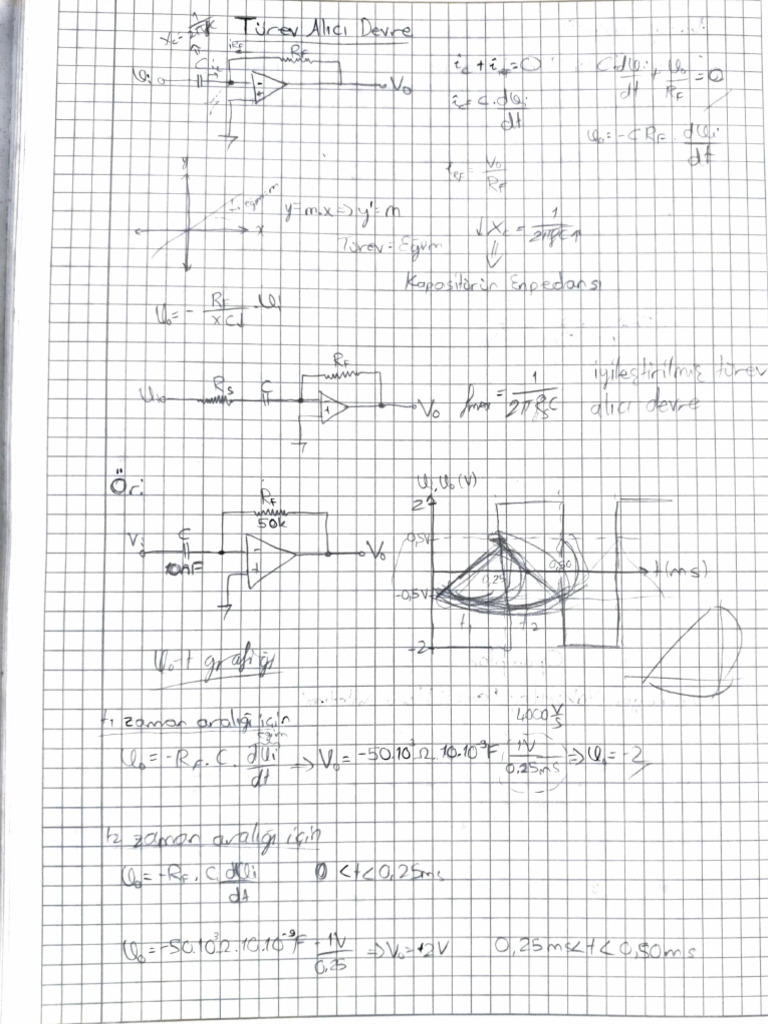 Türev Alıcı Devre
Xc = 1/2πfC
C ic iRF RF
Vi Vo
ic + iRF = 0
ic = C.dVi/dt
C.dVi/dt + Vo/RF = 0
Vo = -C RF. dVi/dt
iRF = Vo/RF
y
x
eğim
y = m.x => y' = m
Türev = Eğim
↓Xc = 1/2πfC↑
Kapasitörün Enpedansı
Vo = - RF/XC↓ . Vi
Vi Rs C RF Vo
fmax = 1/2πRsC
iyileştirilmiş türev
alıcı devre
Ör:
Vi C 10nF RF 50k Vo
Vi, Vo (V)
2
0,5V
0,25 0,50 t(ms)
-0,5V
t1 t2
-2
Vo-t grafiği
t1 zaman aralığı için
eğim
4000 V/s
Vo = -RF. C. dVi/dt => Vo = -50.10³Ω. 10.10⁻⁹F. 1V/0,25ms => Vo = -2
t2 zaman aralığı için
Vo = -RF. C. dVi/dt 0 < t < 0,25ms
Vo = -50.10³Ω. 10.10⁻⁹F -1V/0,25 => Vo = +2V 0,25ms < t < 0,50ms